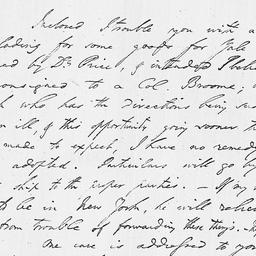 Inclosed I trouble you with a
lading for some goods for Yale
by Dr. Price, & intended I b
consigned to a Col. Broome;
who has the directions being su
ill, & this opportunity going sooner
made to expect, I have no remed
adopted. Particulars will go by
ship to the proper parties. — If my
to be in New York, he will relie
trouble of forwarding these things. —
One case is addressed to you